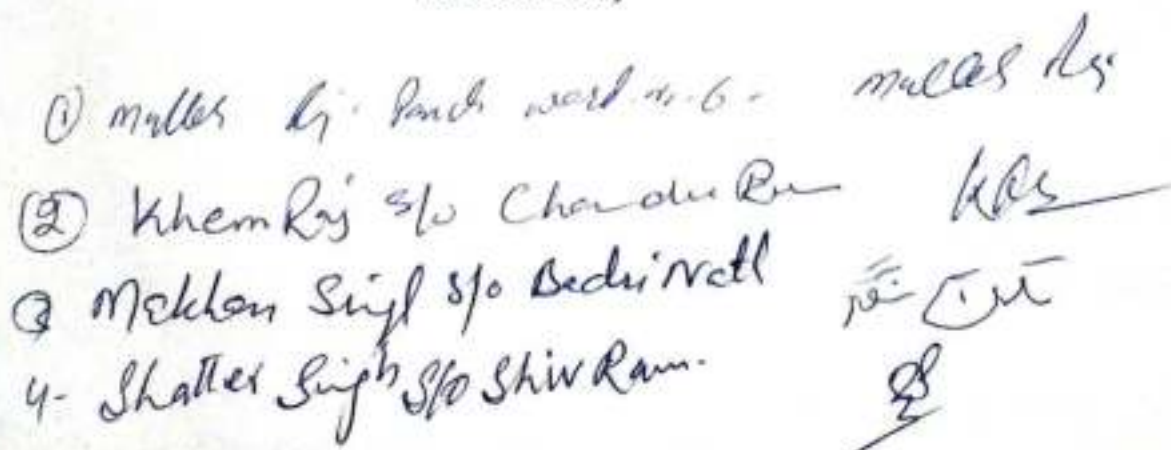 ① Mulkh Rj. Panch ward n. 6. Mulkh Rj
② Khem Raj s/o Chandu Ram KRS
3 Makhan Singh s/o Badri Nath
4- Shatter Singh S/o Shiv Ram.